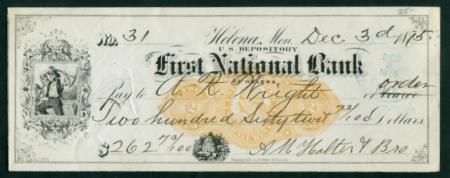 25-
No. 31 Helena, Mon. Dec 3d 1875.
U.S. DEPOSITORY
First National Bank
OF HELENA,
Pay to A. R. Wright or order
Two hundred Sixty two 70/100 Dollars
$262 70/100 A M Holter & Bro